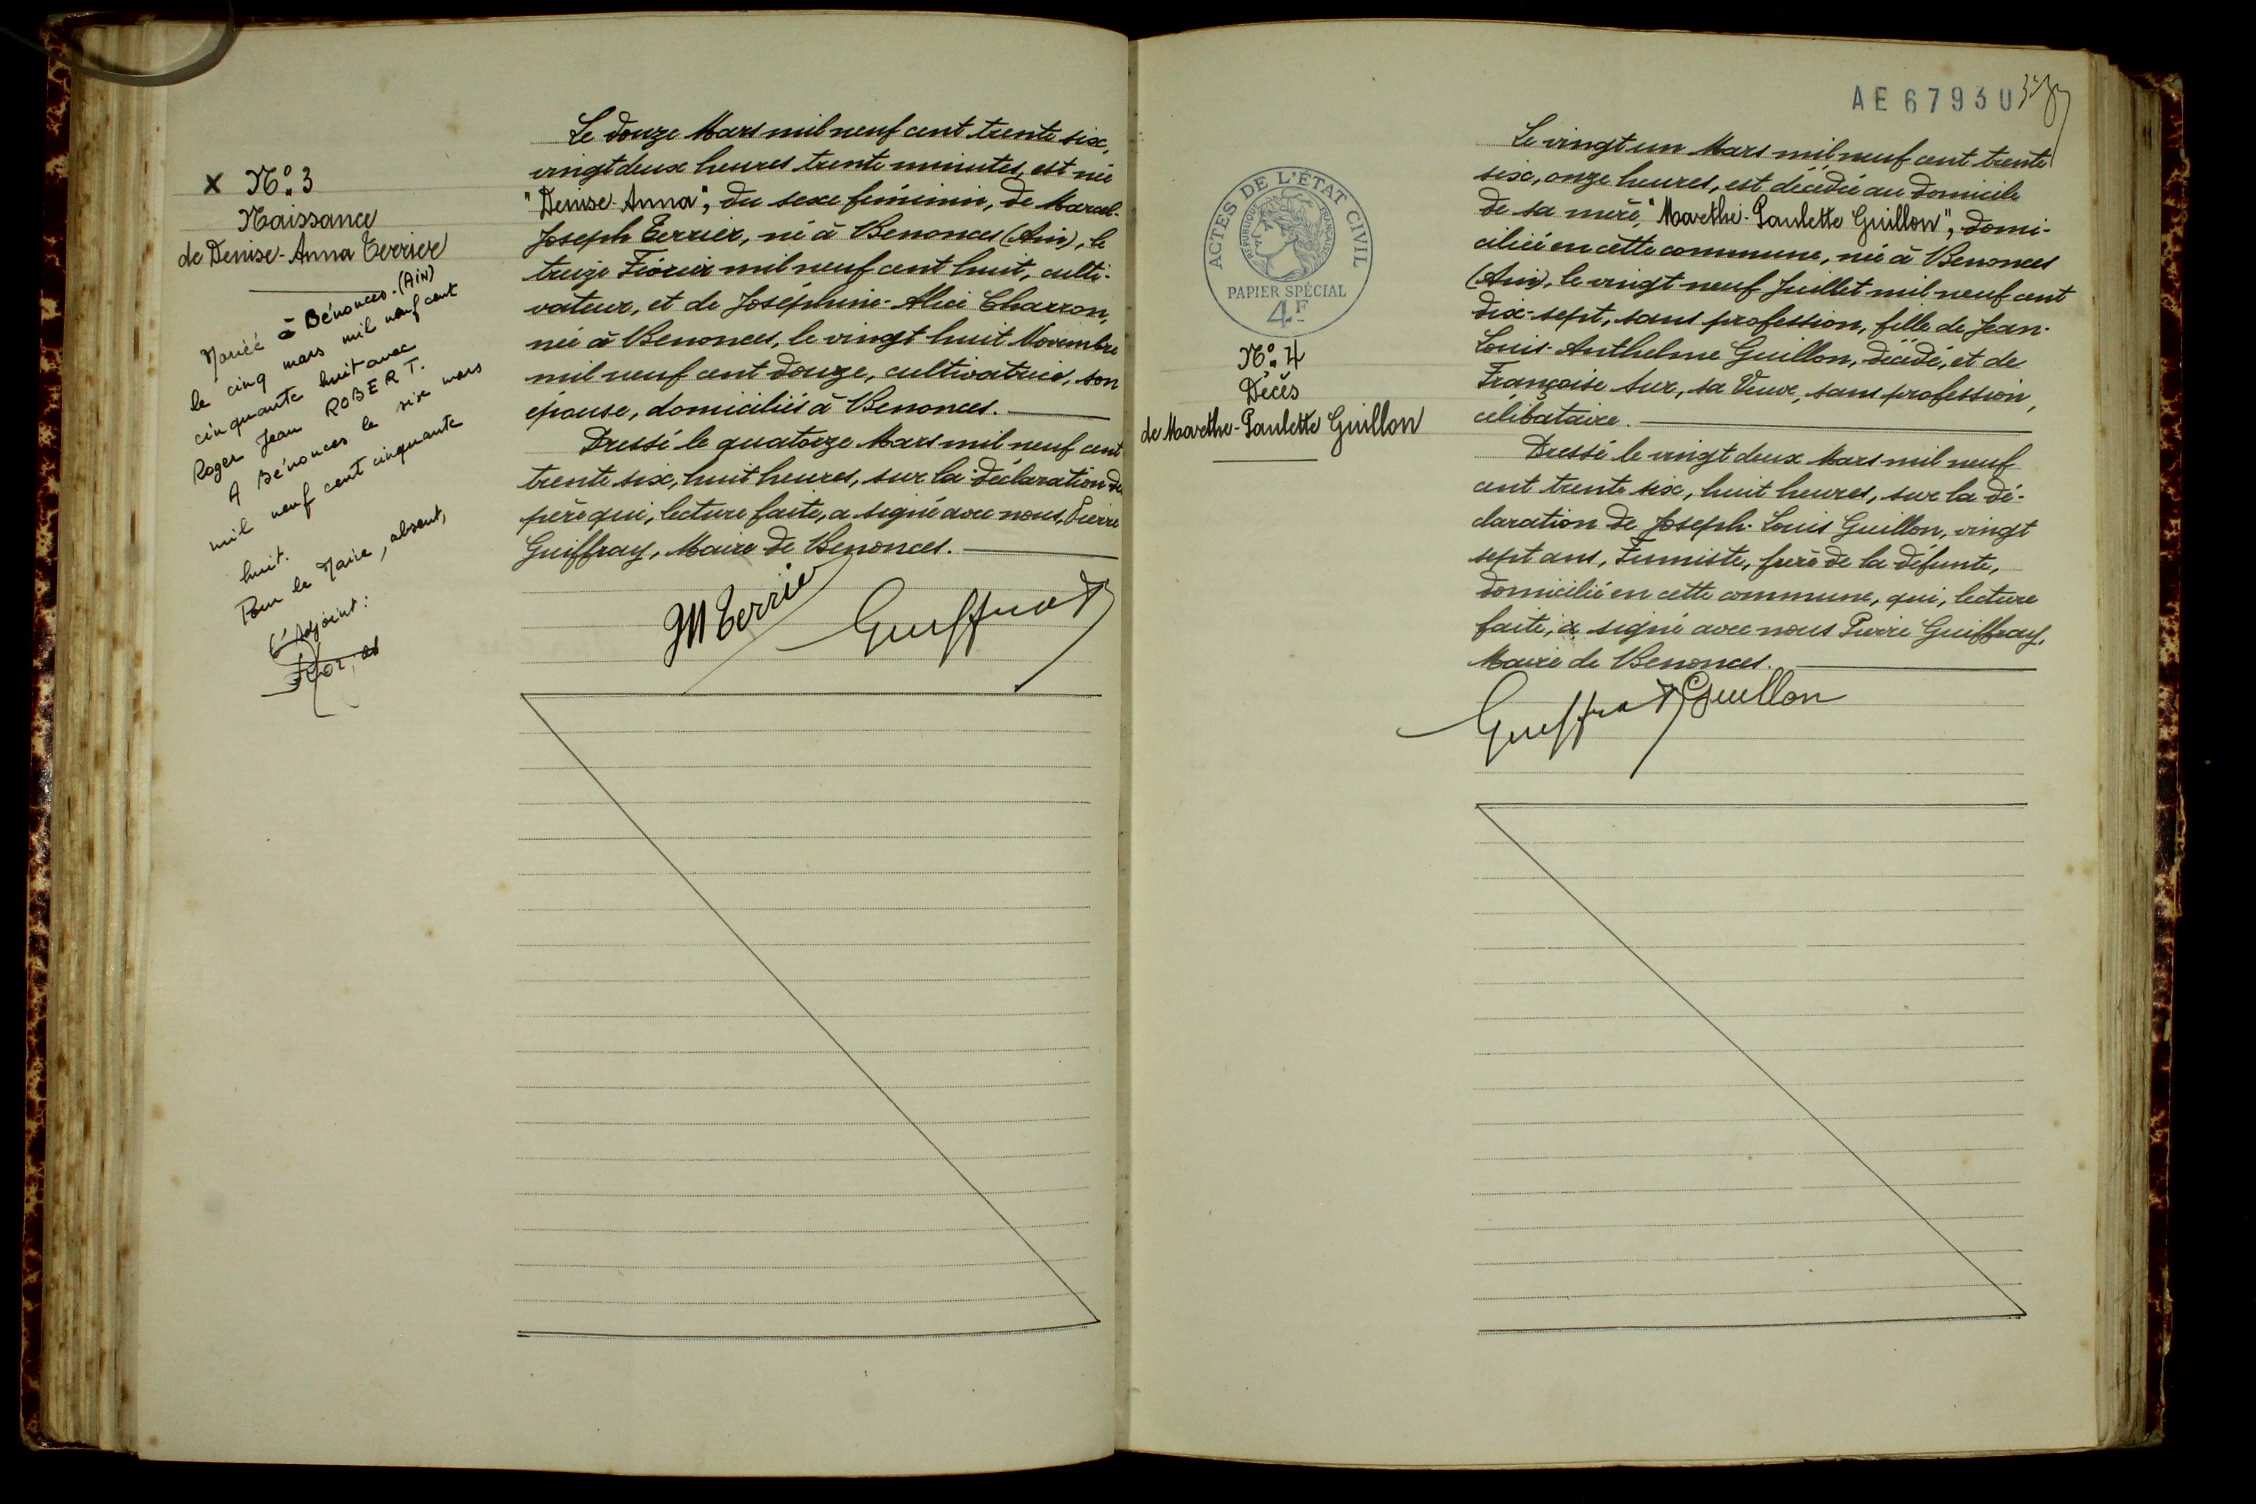 x N° 3
Naissance
de Denise-Anna Terrier
Mariée à Bénonces-(AIN)
le cinq mars mil neuf cent
cinquante huit avec
Roger Jean ROBERT.
A Bénonces le six mars
mil neuf cent cinquante
huit.
Pour le Maire, absent,
l'Adjoint:
Le douze Mars mil neuf cent trente six,
vingt deux heures trente minutes, est née
"Denise-Anna", du sexe féminin, de Marcel-
Joseph Terrier, né à Benonces (Ain), le
treize Février mil neuf cent huit, culti-
vateur, et de Joséphine-Alice Charron,
née à Benonces, le vingt huit Novembre
mil neuf cent douze, cultivatrice, son
épouse, domiciliés à Benonces.
Dressé le quatorze Mars mil neuf cent
trente six, huit heures, sur la déclaration du
père qui, lecture faite, a signé avec nous, Pierre
Guiffray, Maire de Benonces.
JM Terrier Guiffray
AE 67930
ACTES DE L'ÉTAT CIVIL
RÉPUBLIQUE FRANÇAISE
PAPIER SPÉCIAL
4F
N° 4
Décès
de Marthe-Paulette Guillon
Le vingt un Mars mil neuf cent trente
six, onze heures, est décédée au domicile
de sa mère, "Marthe-Paulette Guillon", domi-
ciliée en cette commune, née à Benonces
(Ain), le vingt neuf Juillet mil neuf cent
dix-sept, sans profession, fille de Jean-
Louis Anthelme Guillon, décédé, et de
Françoise Sur, sa Veuve, sans profession,
célibataire.
Dressé le vingt deux Mars mil neuf
cent trente six, huit heures, sur la dé-
claration de Joseph-Louis Guillon, vingt
sept ans, Fumiste, frère de la défunte,
domicilié en cette commune, qui, lecture
faite, a signé avec nous Pierre Guiffray,
Maire de Benonces.
Guiffray Guillon